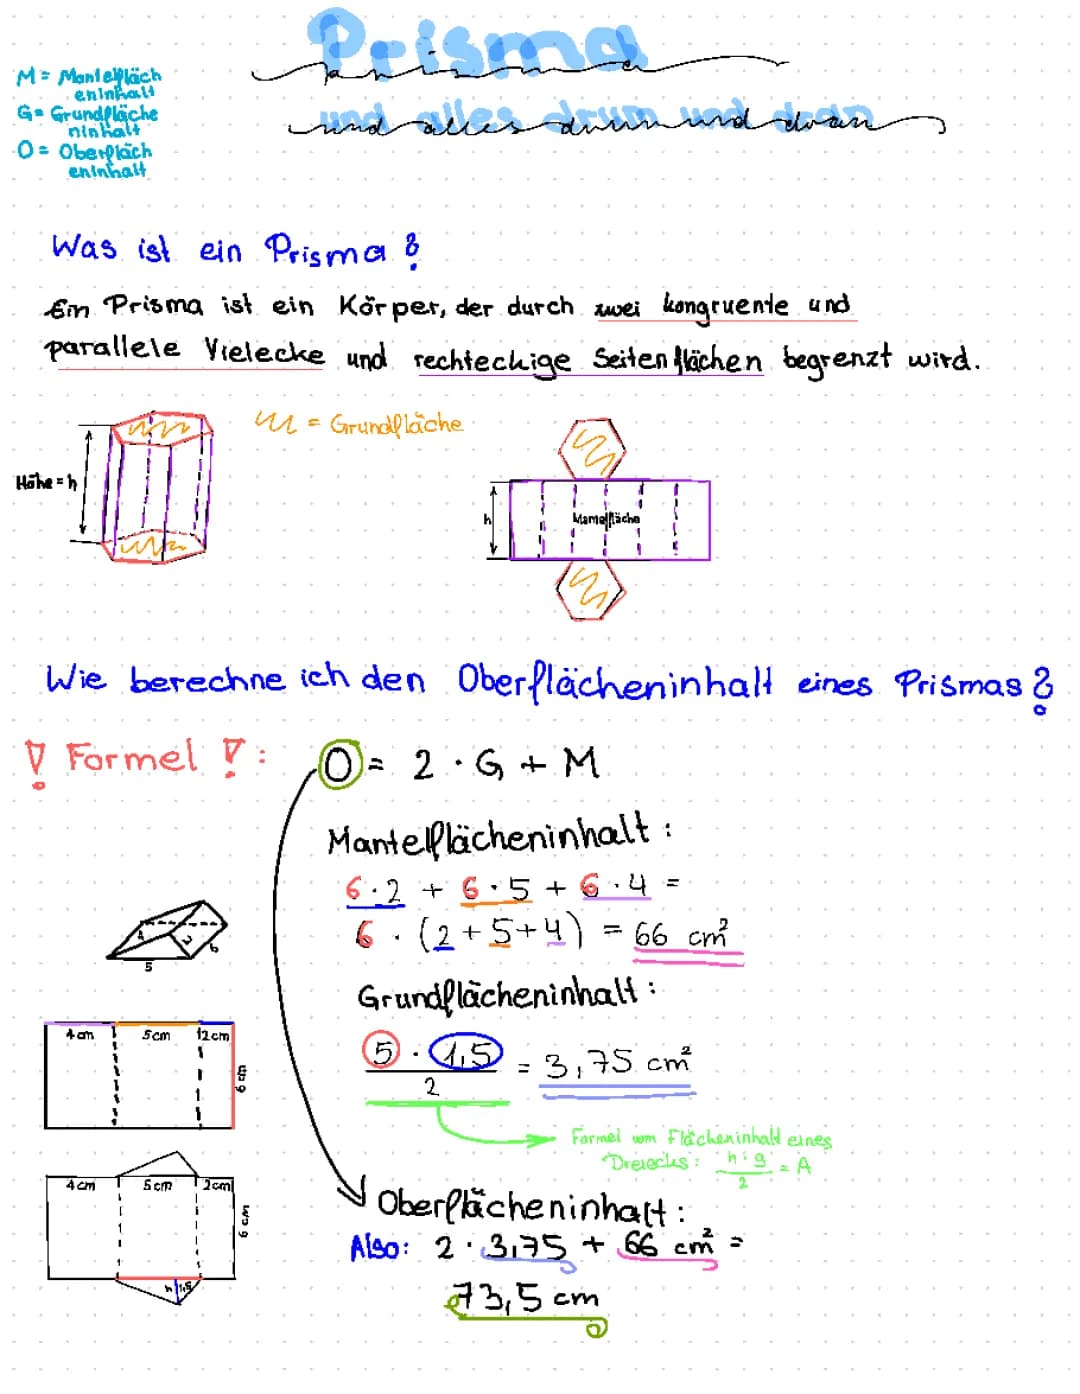 Prisma
und alles drum und dran
M = Mantelfläch
eninhalt
G = Grundfläche
ninhalt
O = Oberfläch
eninhalt
Was ist ein Prisma?
Ein Prisma ist ein Körper, der durch zwei kongruente und
parallele Vielecke und rechteckige Seitenflächen begrenzt wird.
= Grundfläche
Höhe = h
h
Mantelfläche
Wie berechne ich den Oberflächeninhalt eines Prismas?
! Formel !: O = 2 · G + M
Mantelflächeninhalt:
6 · 2 + 6 · 5 + 6 · 4 =
6 · (2 + 5 + 4) = 66 cm²
4 2 6
5
Grundflächeninhalt:
4 cm 5 cm 2 cm
6 cm
5 · 1,5
2
= 3,75 cm²
Formel vom Flächeninhalt eines
Dreiecks: h · g = A
2
4 cm 5 cm 2 cm
6 cm
h 1,5
Oberflächeninhalt:
Also: 2 · 3,75 + 66 cm² =
73,5 cm